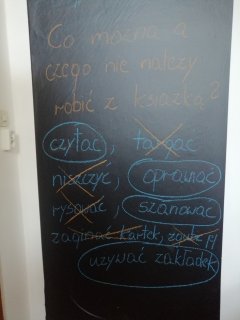 Co można a
czego nie należy
robić z książką?
czytać, targać
niszczyć, oprawiać
rysować, szanować
zaginać kartek,
używać zakładek